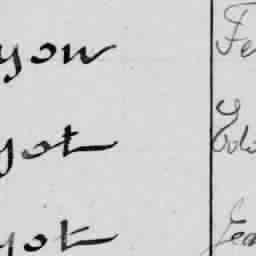 yon Fe
yot Edo
yot Jea